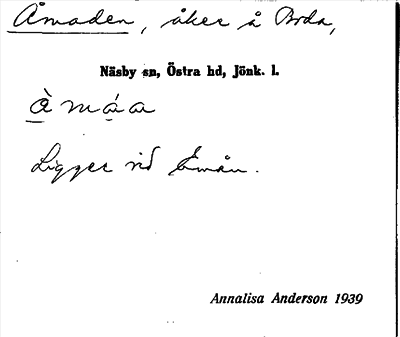 Åmaden, åker å Boda,
Näsby sn, Östra hd, Jönk. l.
À m á a
Ligger vid Emån.
Annalisa Anderson 1939